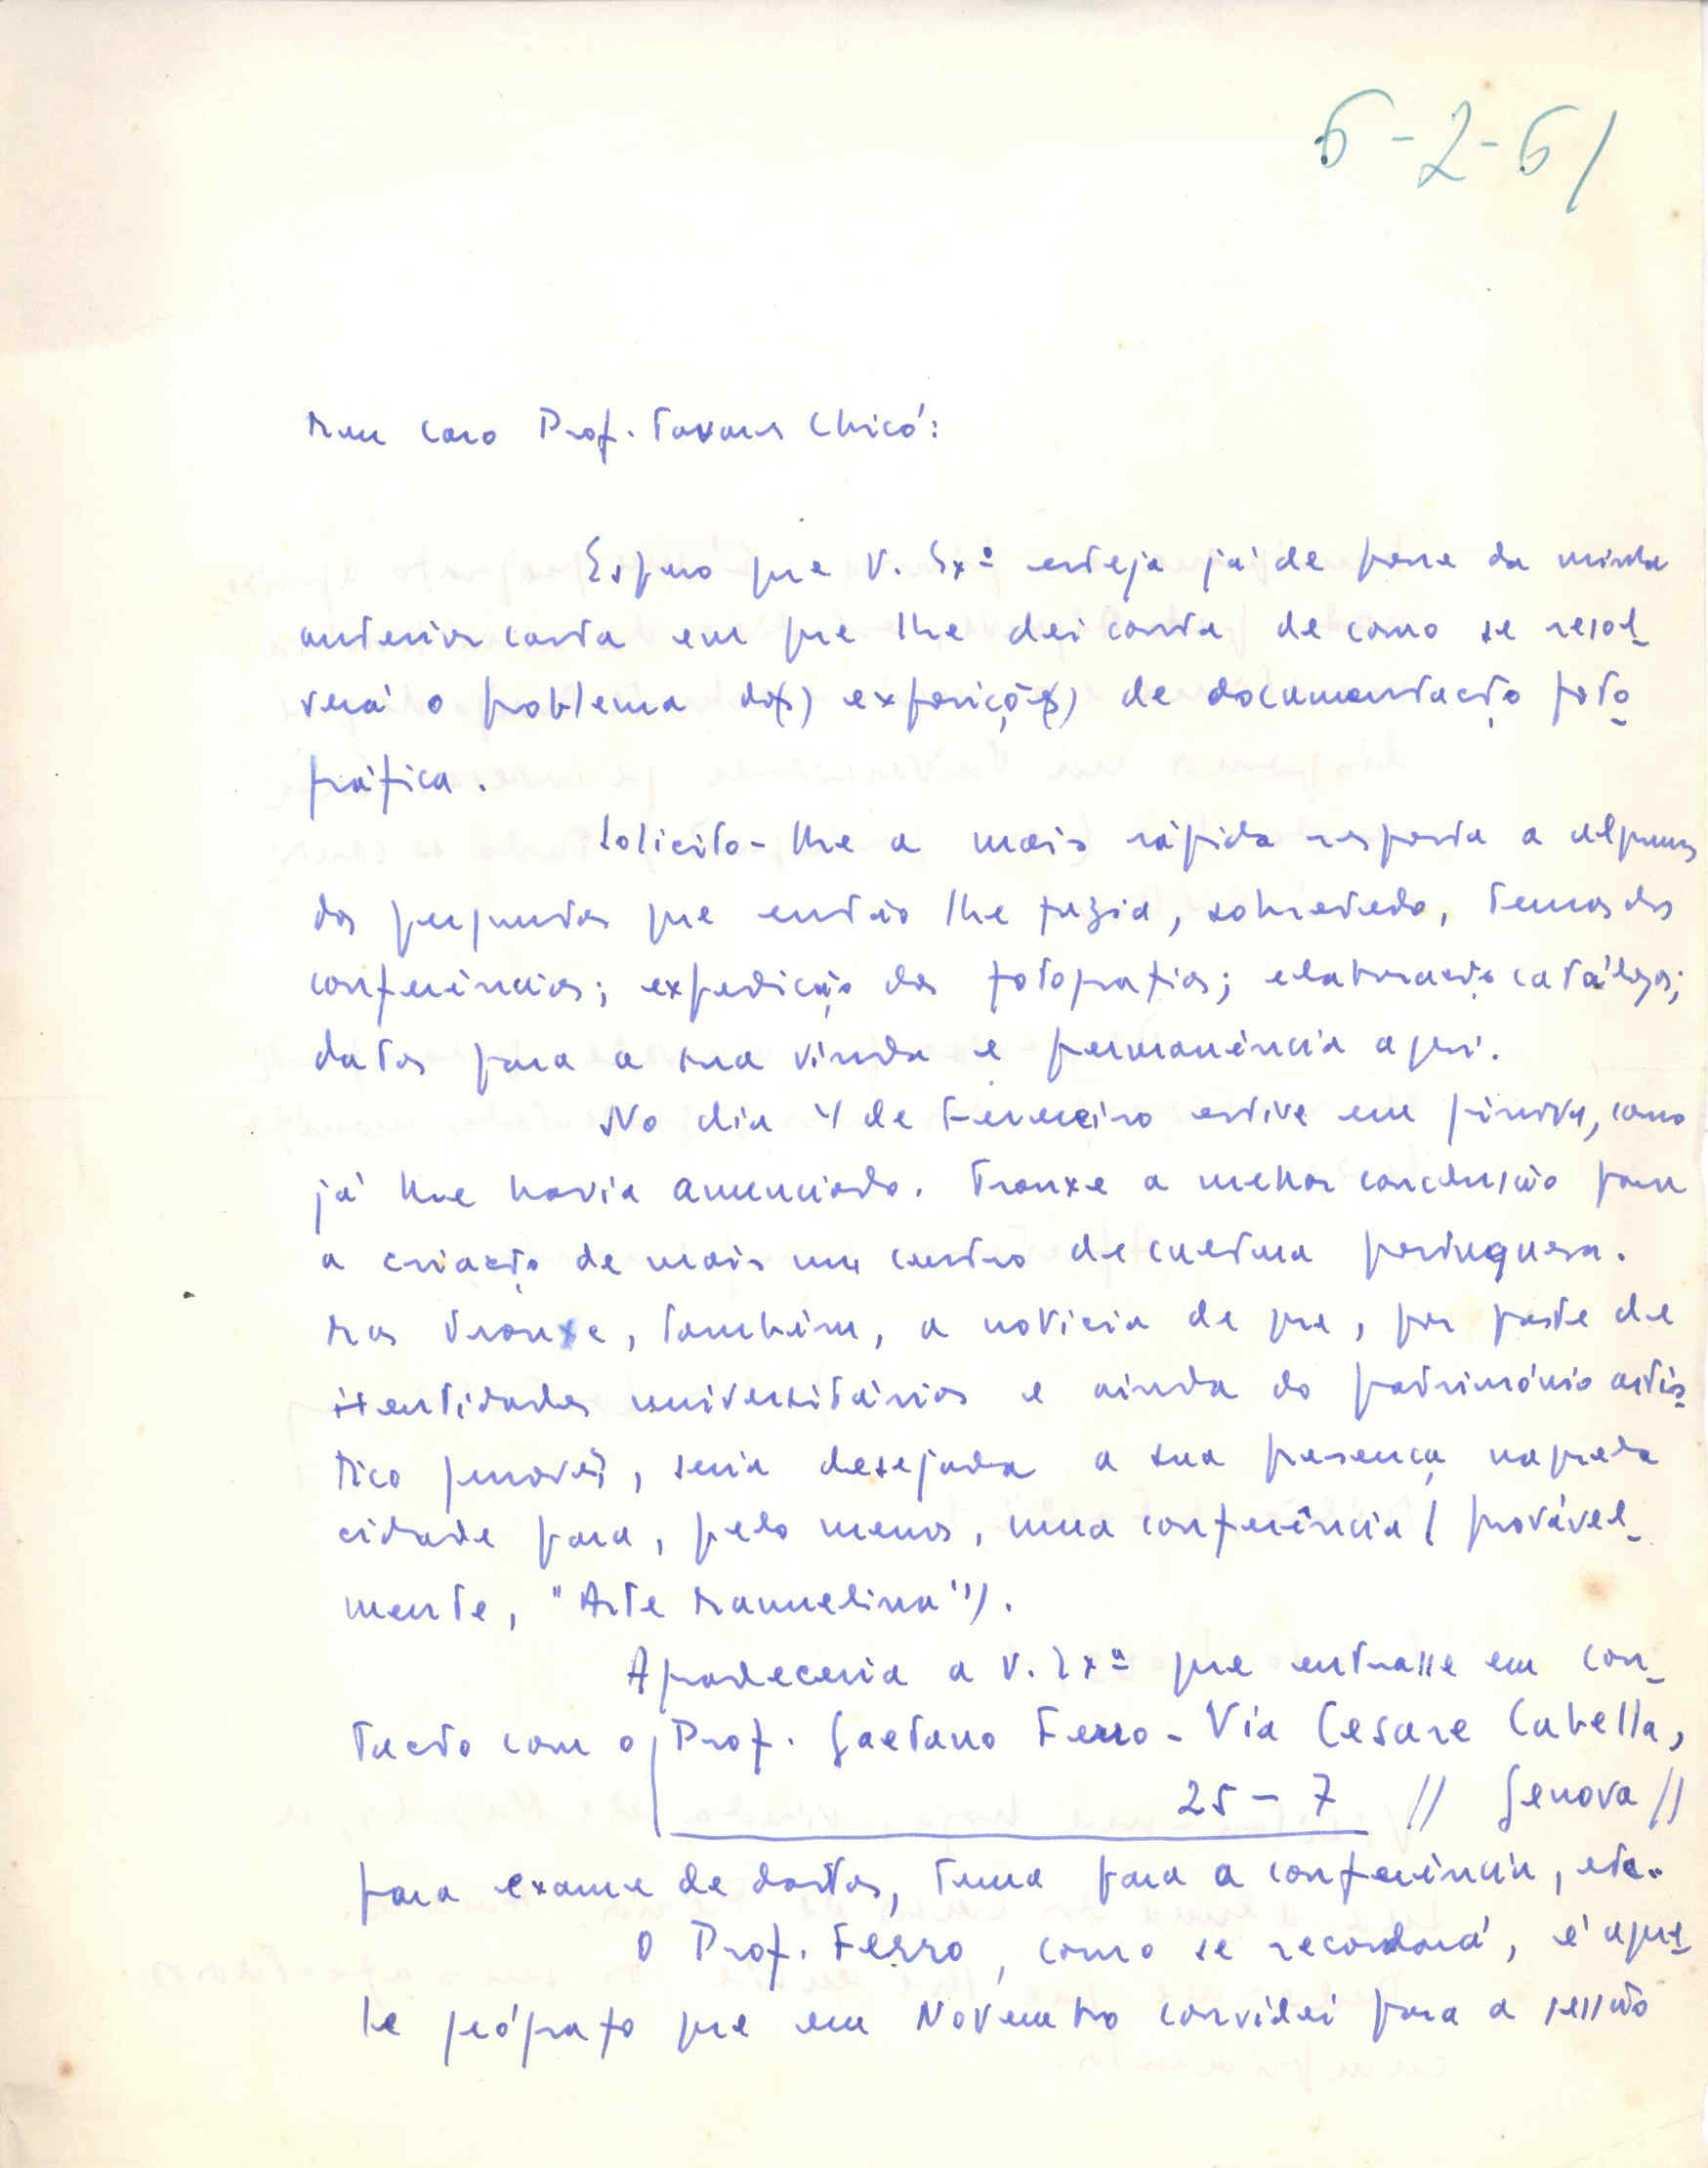 6-2-61
Meu caro Prof. Tavares Chicó:
Espero que V. Exª esteja já de posse da minha
anterior carta em que lhe dei conta de como se resol-
verá o problema da(s) exposiçõe(s) de documentação foto-
gráfica.
Solicito-lhe a mais rápida resposta a algumas
das perguntas que então lhe fazia, sobretudo, temas das
conferências; expedição das fotografias; elaboração catálogos;
datas para a sua vinda e permanência aqui.
No dia 4 de Fevereiro estive em Génova, como
já lhe havia anunciado. Trouxe a melhor conclusão para
a criação de mais um centro de cultura portuguesa.
Mas trouxe, também, a notícia de que, por parte de
entidades universitárias e ainda do património artís-
tico genovês, seria desejada a sua presença naquela
cidade para, pelo menos, uma conferência (provável-
mente, "Arte Manuelina").
Agradeceria a V. Exª que entrasse em con-
tacto com o Prof. Gaetano Ferro - Via Cesare Cabella,
25 - 7 // Genova //
para exame de datas, tema para a conferência, etc..
O Prof. Ferro, como se recordará, é aque-
le geógrafo que em Novembro convidei para a sessão